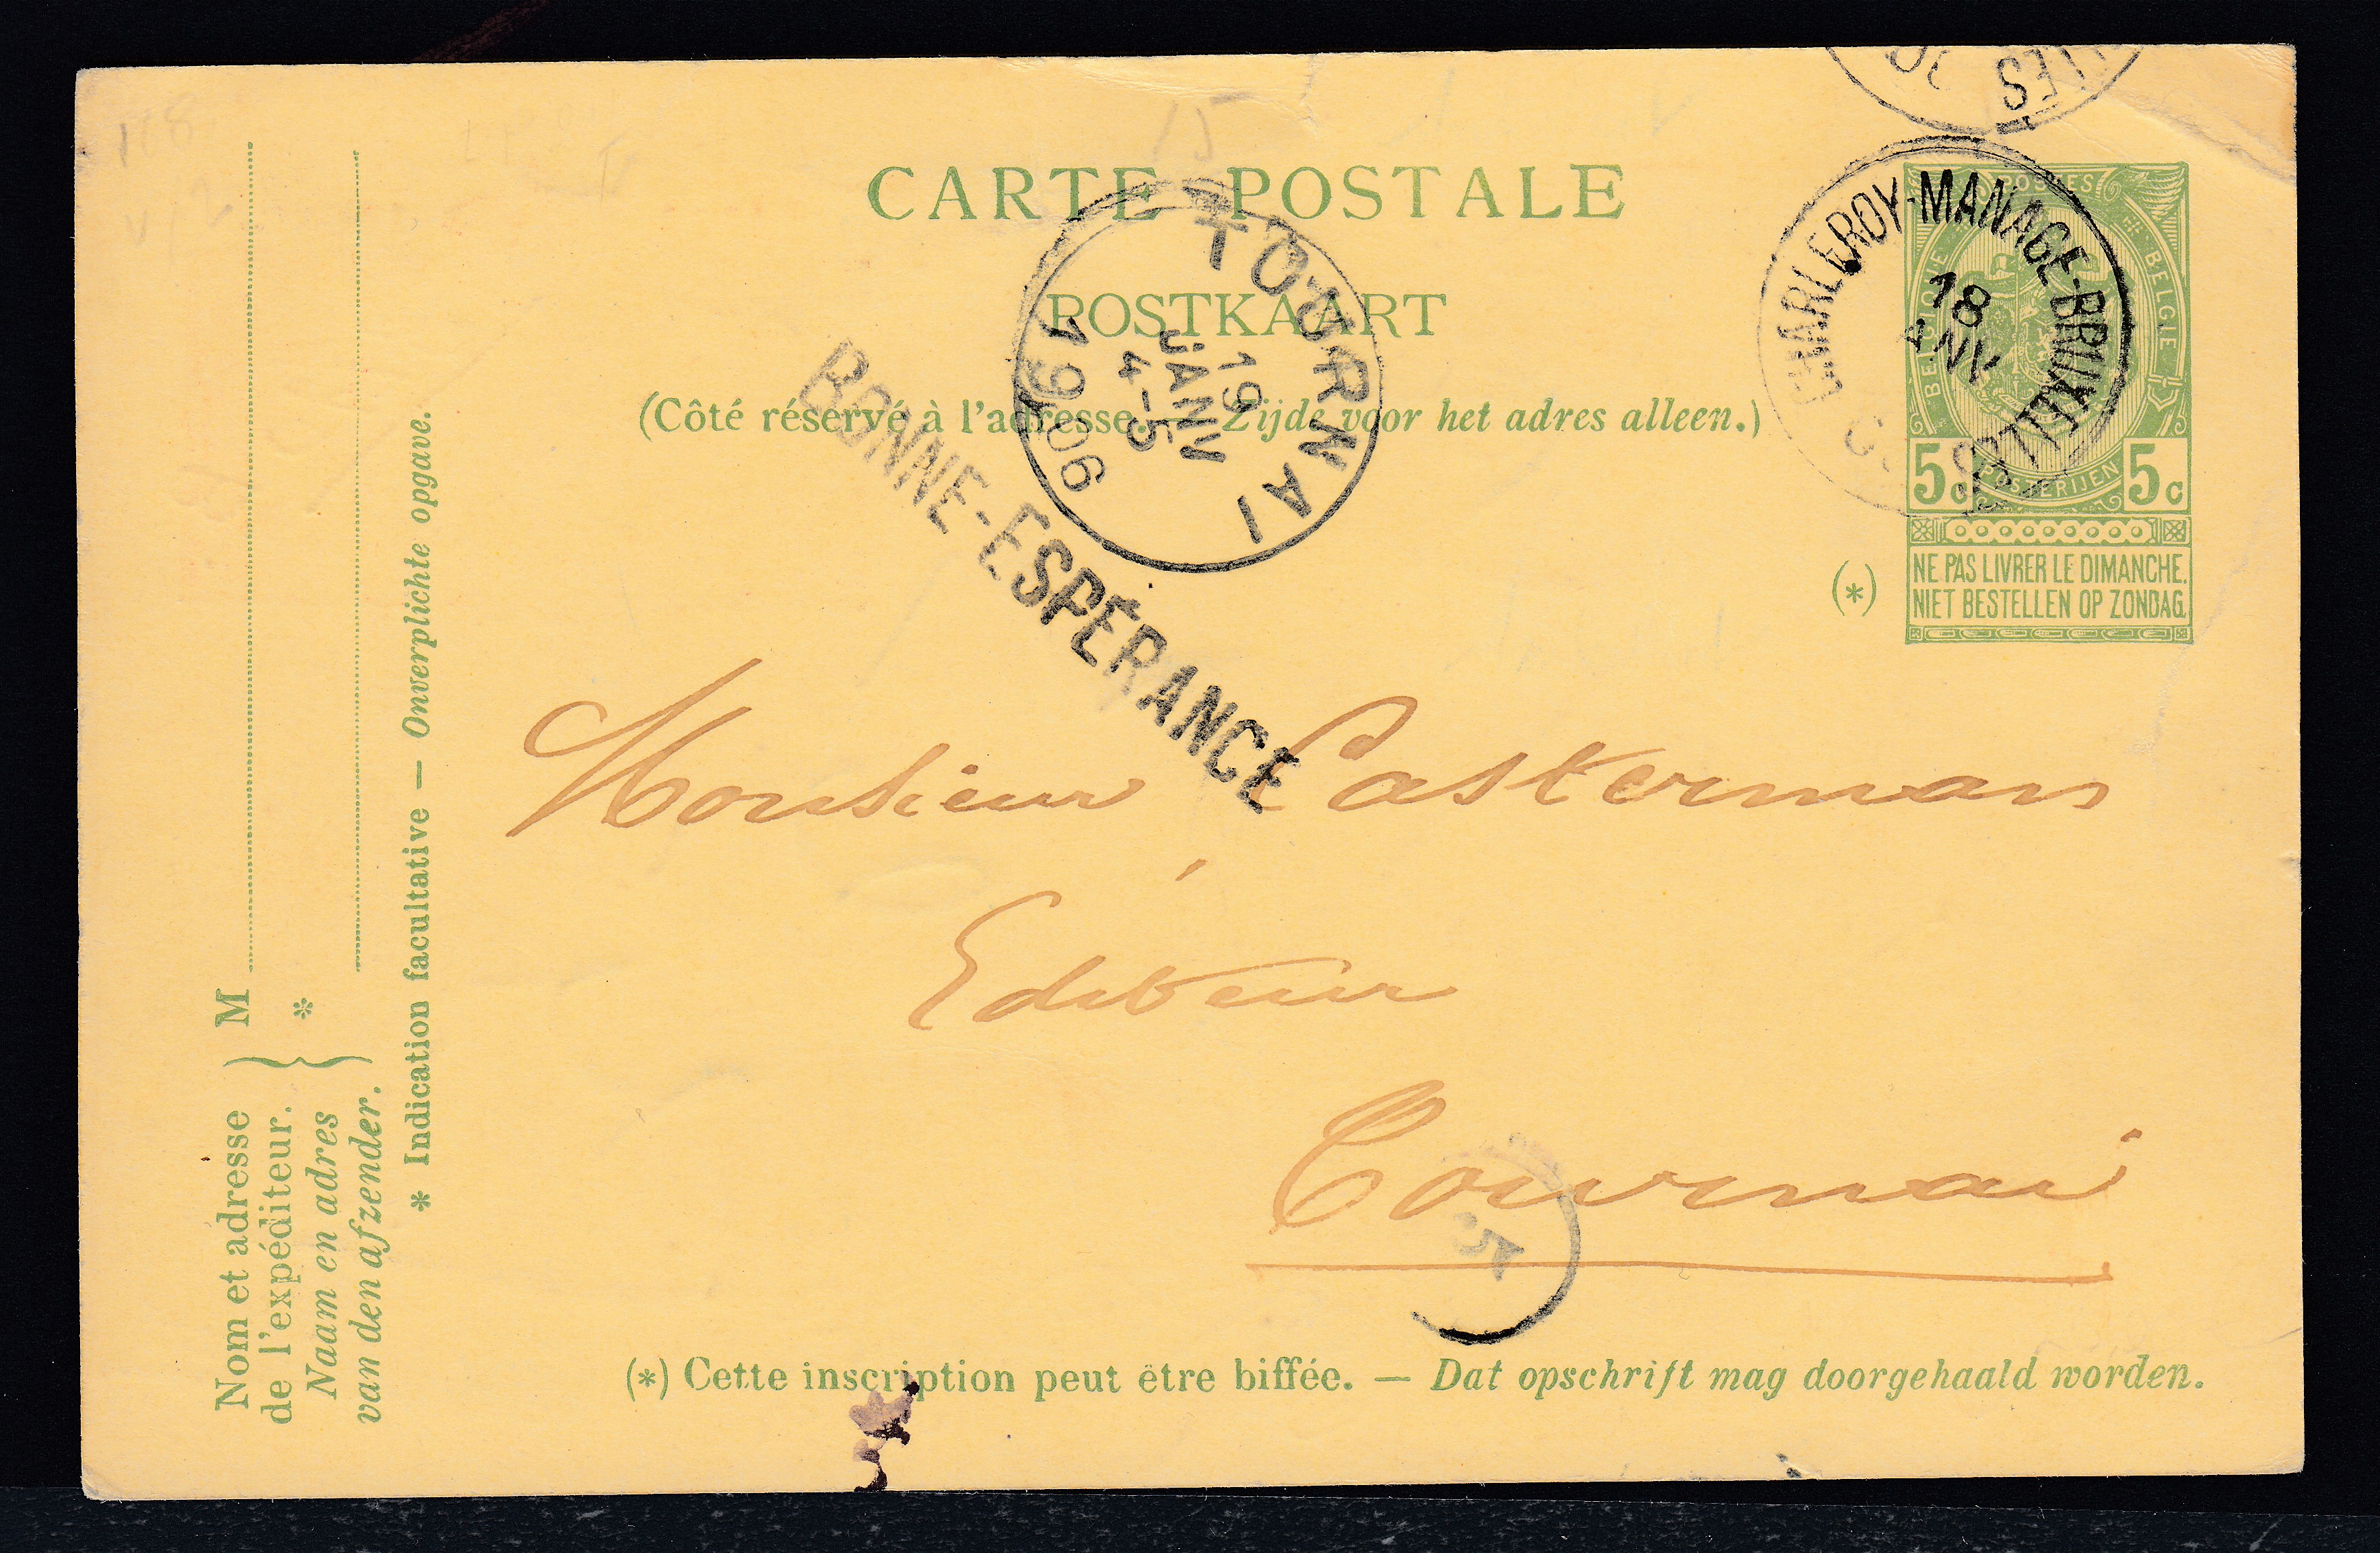 CARTE POSTALE
POSTKAART
(Côté réservé à l'adresse. — Zijde voor het adres alleen.)
TOURNAI
19
JANV
4-5
1906
BONNE-ESPÉRANCE
CHARLEROY-MANAGE-BRUXELLES
18
ANV
POSTES
BELGIQUE
BELGIE
POSTERIJEN
5c
5c
(*)
NE PAS LIVRER LE DIMANCHE.
NIET BESTELLEN OP ZONDAG.
Monsieur Casterman
Editeur
Tournai
(*) Cette inscription peut être biffée. — Dat opschrift mag doorgehaald worden.
Nom et adresse
de l'expéditeur.
Naam en adres
van den afzender.
M
*
* Indication facultative — Onverplichte opgave.
15
118